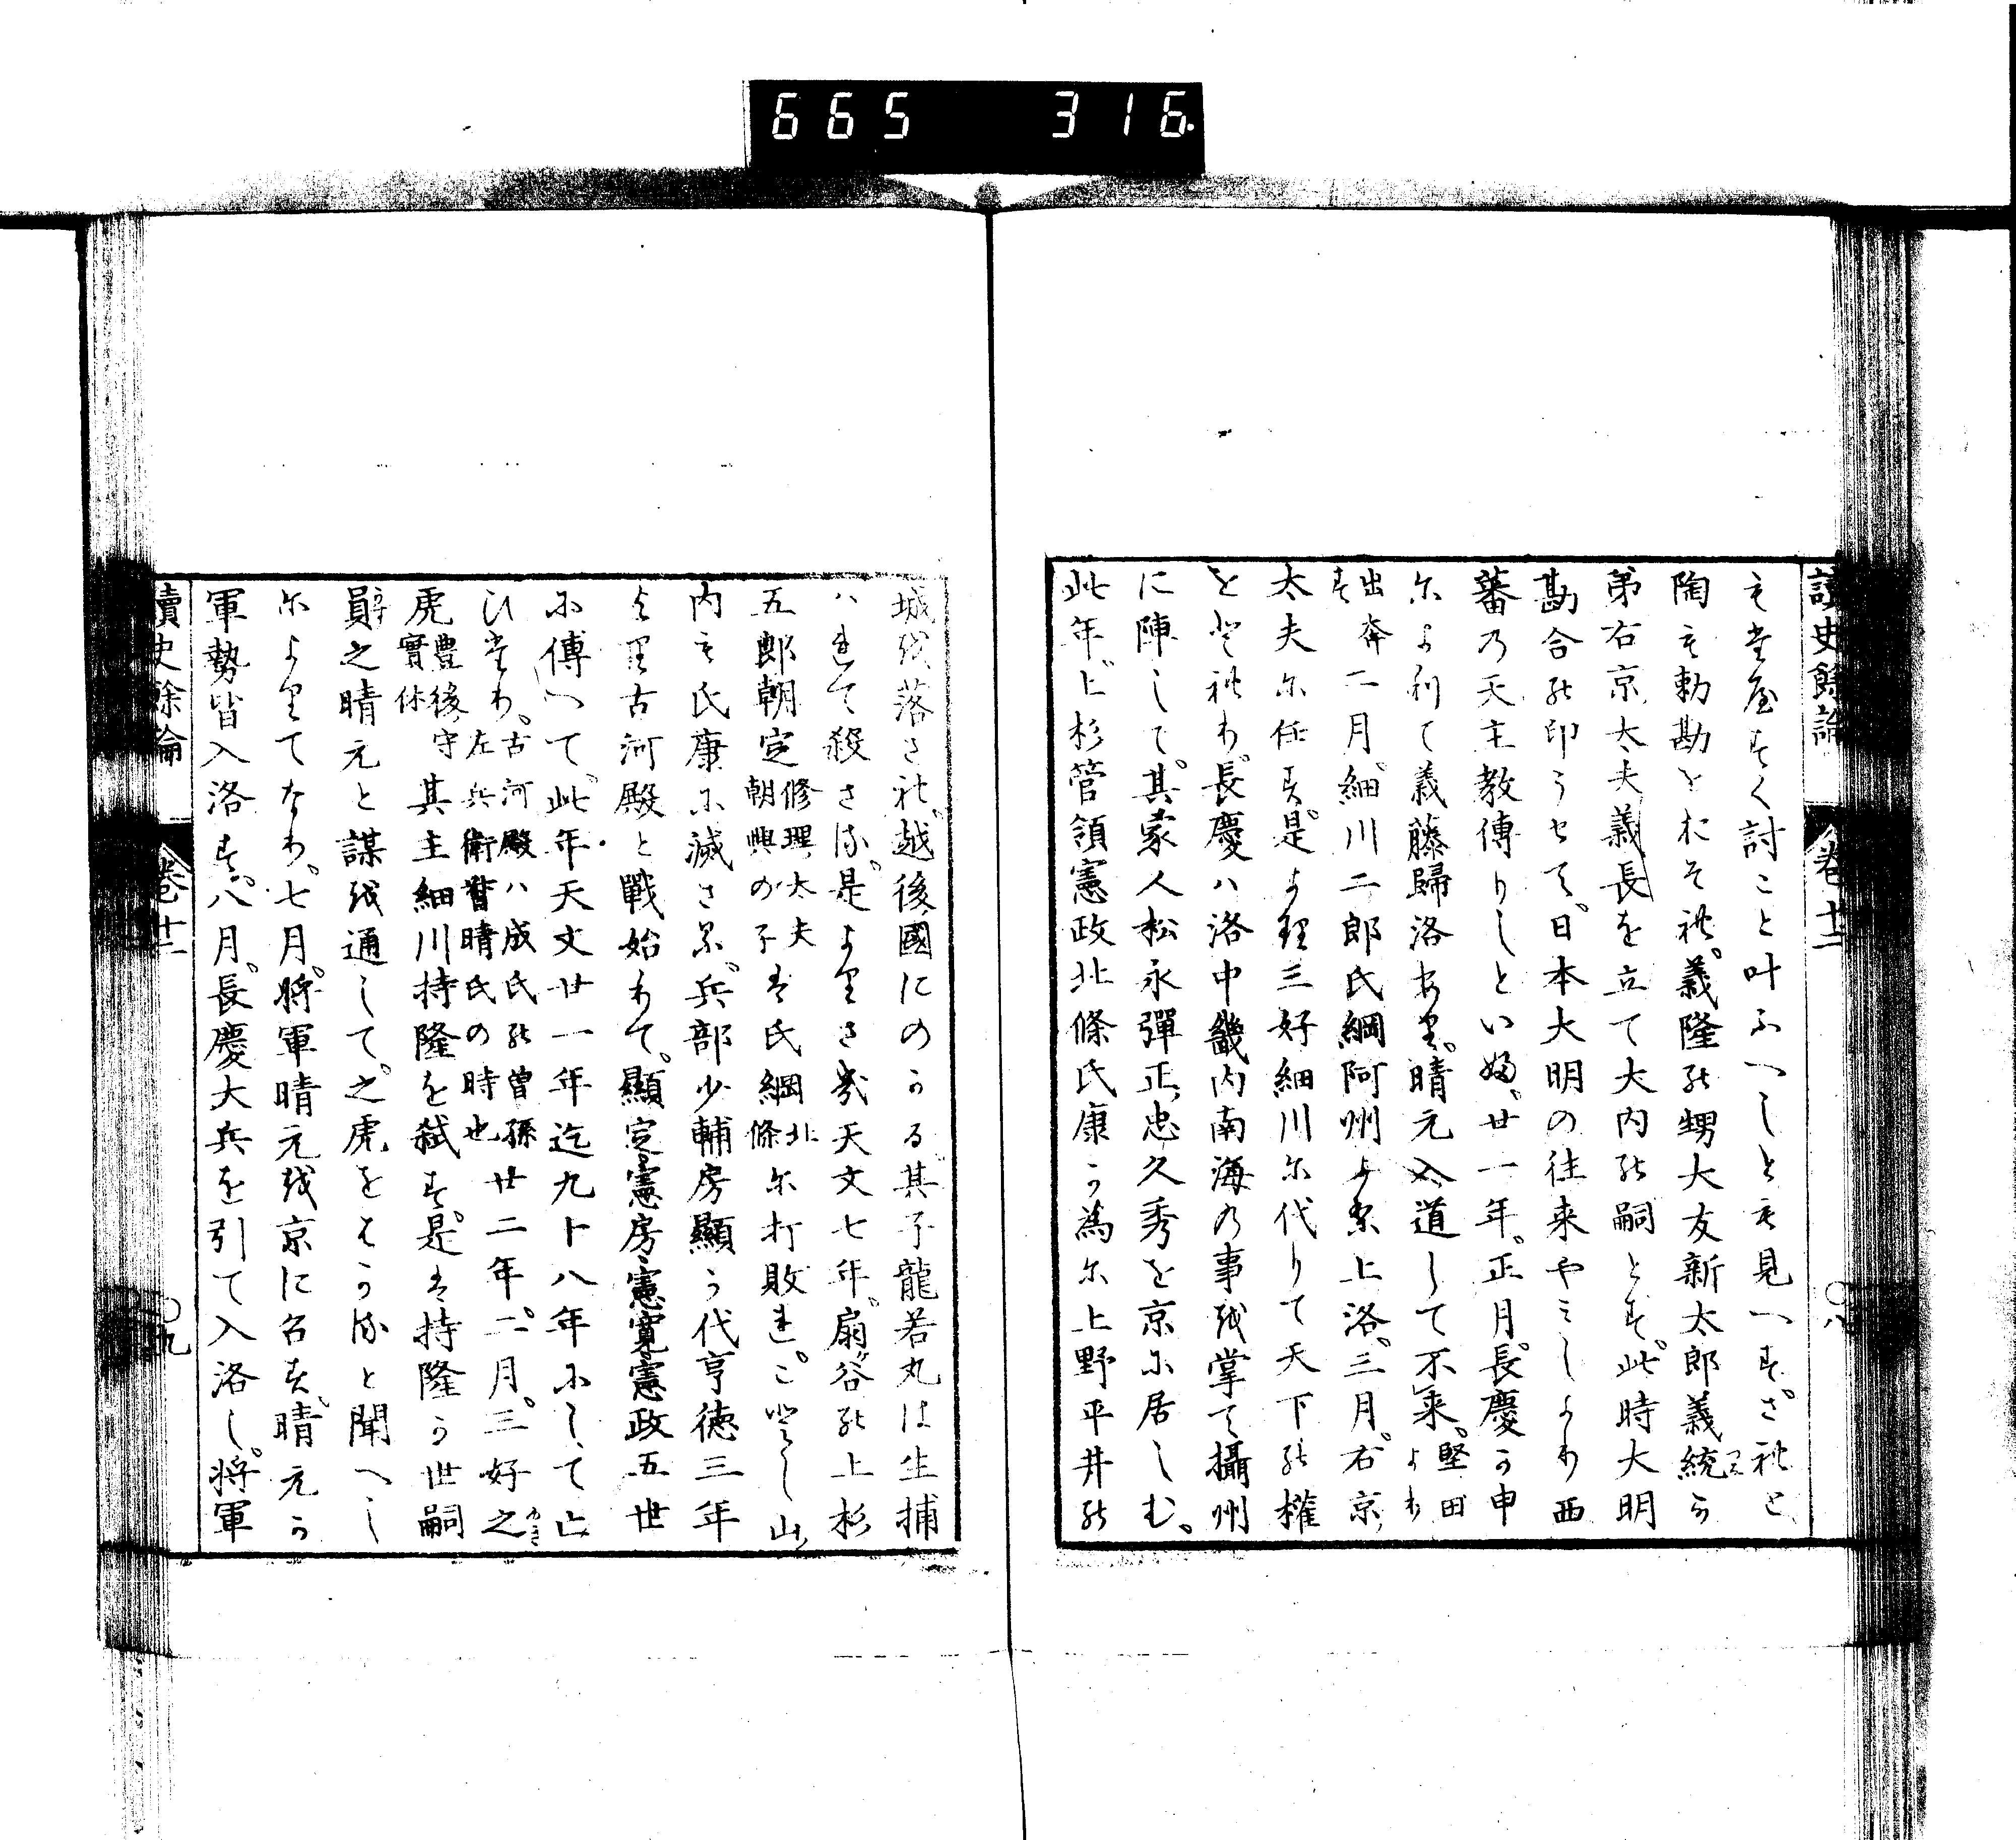 665 316.
讀史餘論 卷十二 〇八
もたやすく討こと叶ふへしとも見へす。されと
陶も勅勘をおそれ。義隆の甥大友新太郎義統か
弟右京太夫義長を立て大内の嗣とす。此時大明
勘合の印うせて。日本大明の往来やみしより西
蕃の天主教傳りしといふ。廿一年。正月。長慶か申
によりて義藤歸洛あり。晴元入道して不来。堅田より
出奔す 二月。細川二郎氏綱阿州より上洛。三月。右京
太夫に任す。是より三好細川に代りて天下の權
をとれり。長慶ハ洛中畿内南海の事を掌て攝州
に陣して。其家人松永彈正忠久秀を京に居しむ。
此年上杉管領憲政北條氏康か為に上野平井の
城を落され。越後國にのかる。其子龍若丸は生捕
ハれて殺さる。是よりさき天文七年。扇谷の上杉
五郎朝定 修理太夫朝興の子 は氏綱 北條 に打敗れ。ことし山
内も氏康に滅さる。兵部少輔房顯か代亨徳三年
より古河殿と戰始りて。顯定憲房憲寛憲政五世
に傳へて。此年天文廿一年迄九十八年にして亡
ひたり。古河殿ハ成氏の曽孫左兵衛督晴氏の時也 廿二年。二月。三好之
虎 豊後守實休 其主細川持隆を弑す。是は持隆か世嗣
員之晴元と謀を通して。之虎をはかると聞へし
によりてなり。七月。将軍晴元を京に召す。晴元か
軍勢皆入洛す。八月。長慶大兵を引て入洛し。将軍
讀史餘論 卷十二 〇九